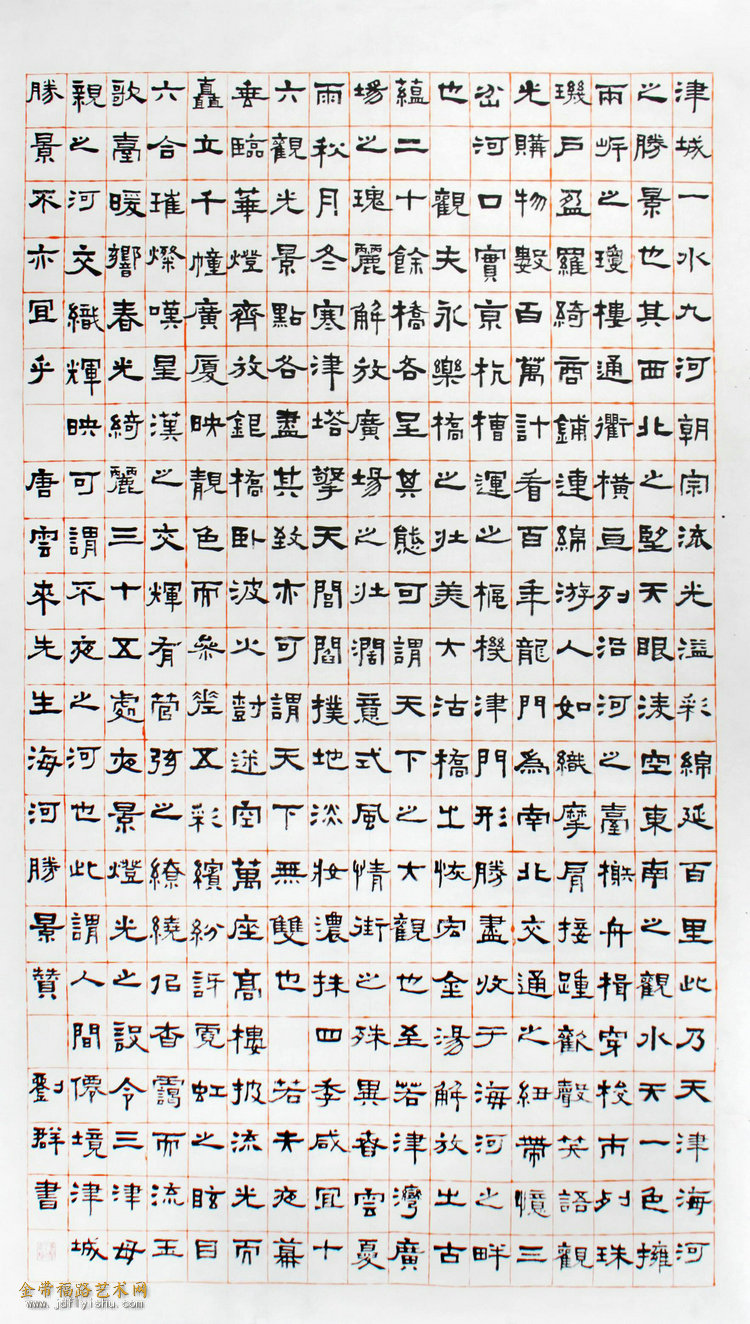 津城一水九河朝宗流光溢彩綿延百里此乃天津海河
之勝景也其西北之望天眼淩空東南之觀水天一色擁
兩岸之瓊樓通衢橫亘列沿河之臺榭舟楫穿梭市列珠
璣戶盈羅綺商鋪連綿游人如織摩肩接踵歡聲笑語觀
光購物數百萬計看百年龍門為南北交通之紐帶憶三
岔河口實京杭槽運之樞機津門形勝盡收于海河之畔
也 觀夫永樂橋之壯美大沽橋之恢宏金湯解放之古
蘊二十餘橋各呈其態可謂天下之大觀也至若津灣廣
場之瑰麗解放廣場之壯濶意式風情街之殊異春雲夏
雨秋月冬寒津塔擎天閭閻撲地淡妝濃抹四季咸宜十
六觀光景點各盡其致亦可謂天下無雙也 若夫夜幕
垂臨華燈齊放銀橋卧波火尌迷空萬座高樓披流光而
矗立千幢廣厦映靚色而參差五彩繽紛訝霓虹之眩目
六合璀燦嘆星漢之交輝有管弦之繚繞佀杳靄而流玉
歌臺暖響春光綺麗三十五處夜景燈光之設令三津母
親之河交織輝映可謂不夜之河也此謂人間僊境津城
勝景不亦宜乎 唐雲來先生海河勝景贊 劉群書
金带福路艺术网
www.jdflyishu.com